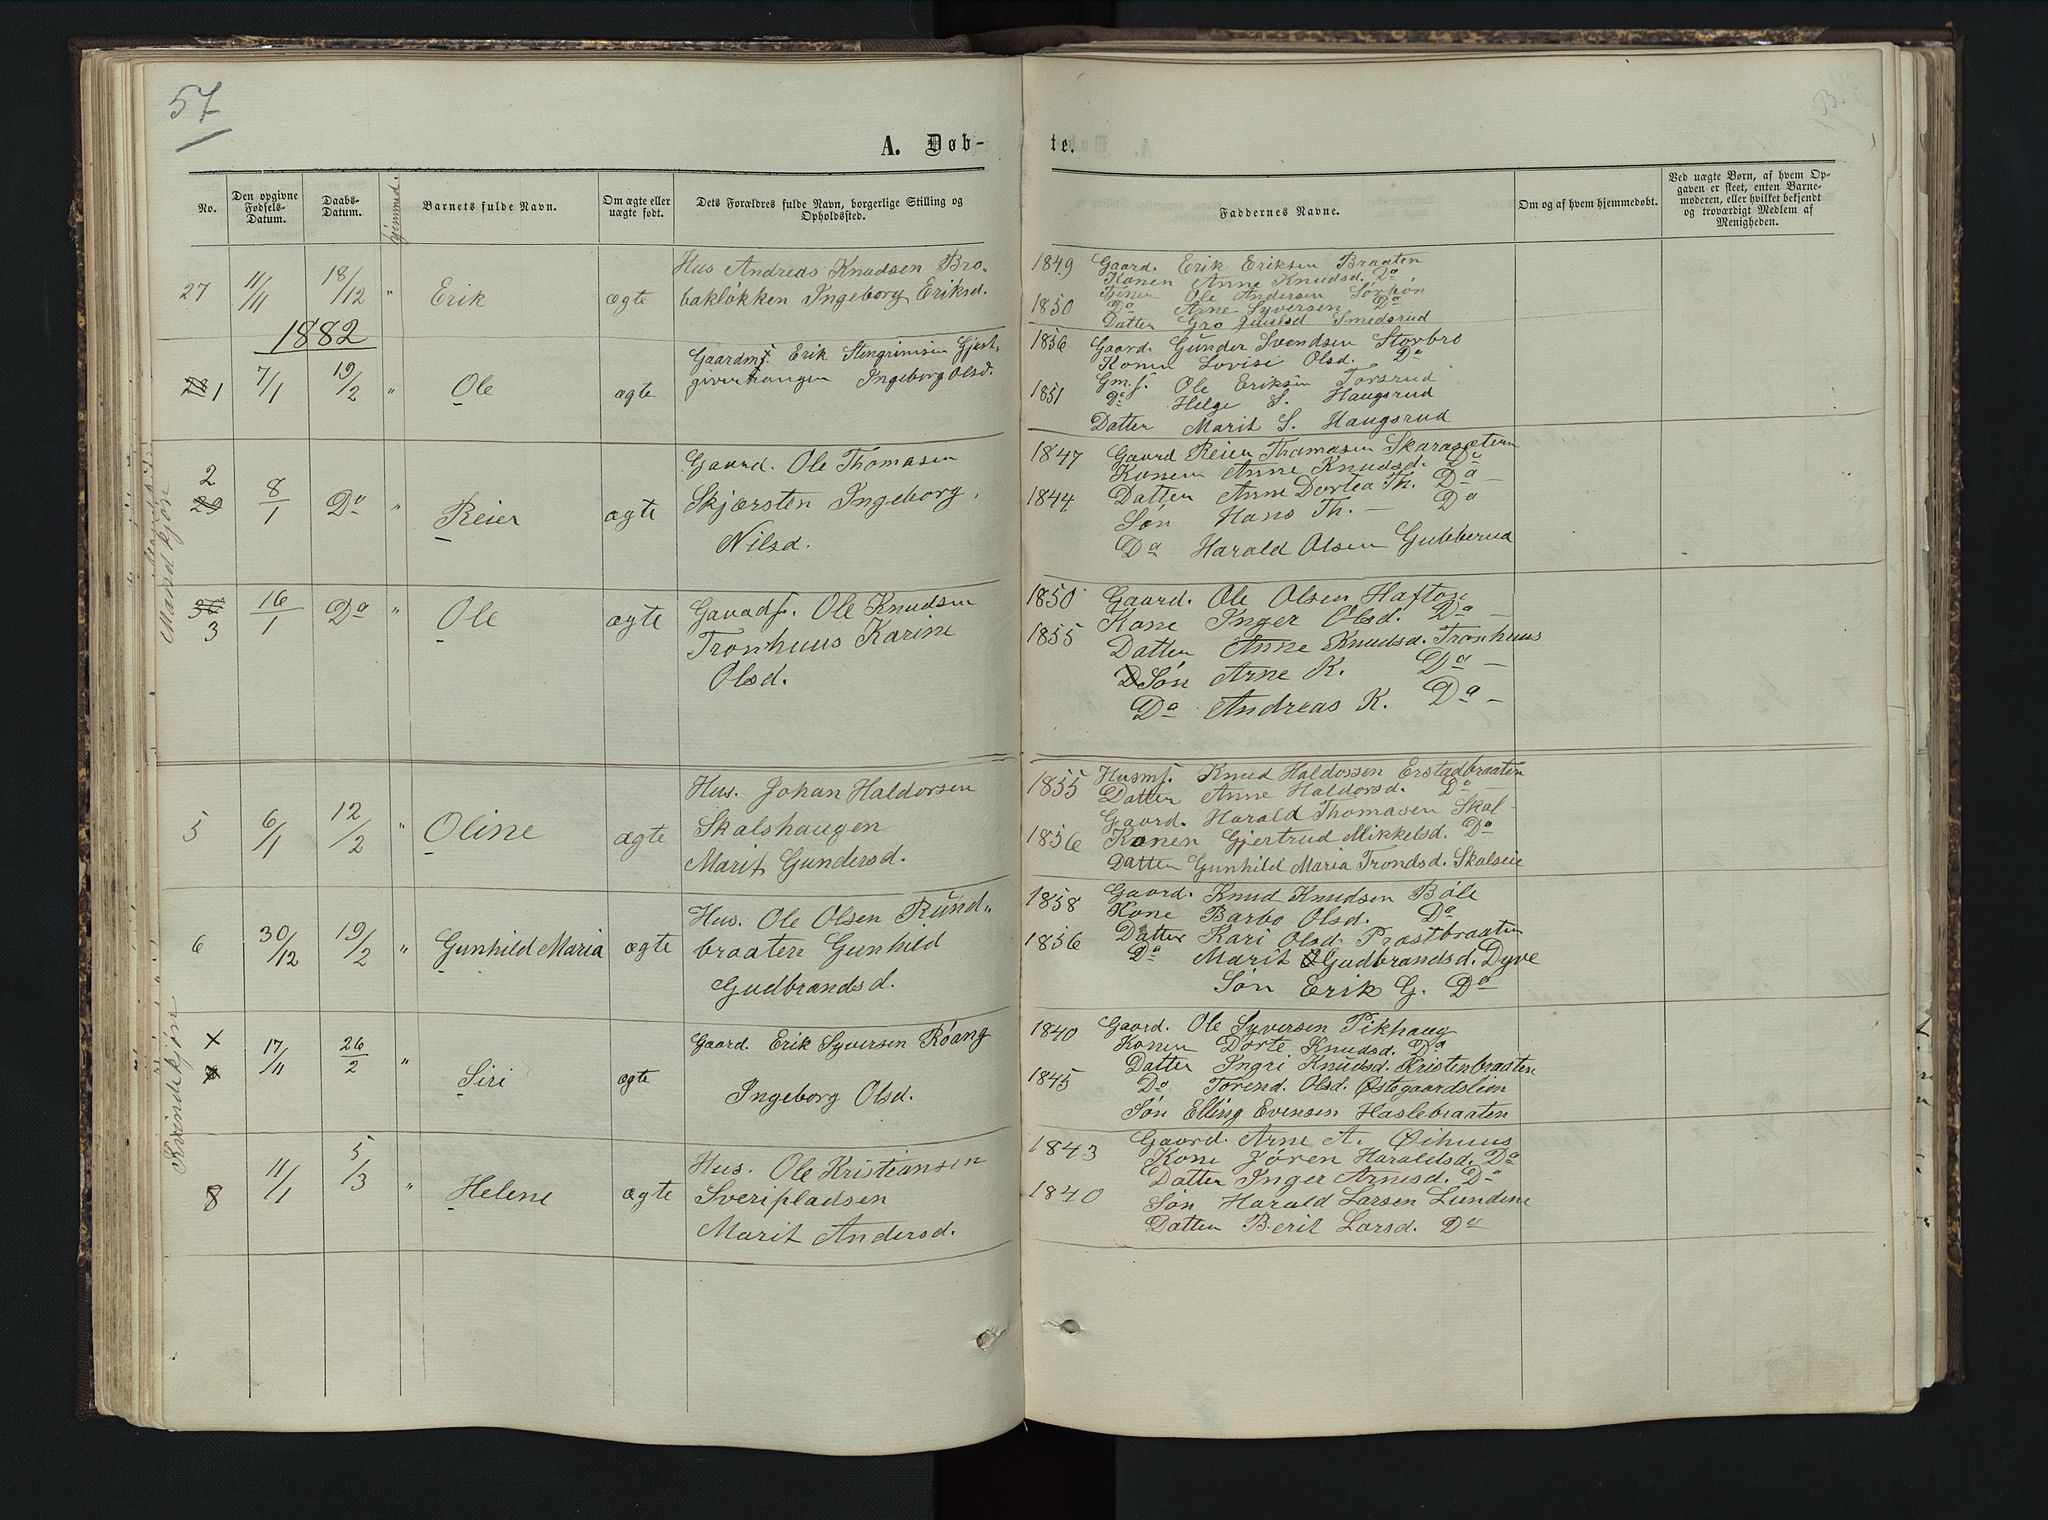 57
A. Døb-
No.
Den opgivne Fødsels-Datum.
Daabs-Datum.
hjemmed.
Barnets fulde Navn.
Om ægte eller uægte født.
Dets Forældres fulde Navn, borgerlige Stilling og Opholdssted.
27 11/11 18/12 " Erik ægte
Hus Andreas Knudsen Bro-
bakløkken Ingeborg Eriksd.
1882
1 7/1 19/2 " Ole ægte
Gaardmf. Erik Stengrimsen Gjest-
giverhaugen Ingeborg Olsd.
Mandkjøn
2
29 8/1 Do " Reier ægte
Gaard. Ole Thomasen
Skjærsten Ingeborg
Nilsd.
30 16/1 Do " Ole ægte
3
Gaardf. Ole Knudsen
Tronhuus Karine
Olsd.
5 6/1 12/2 " Oline ægte
Hus. Johan Haldorsen
Skalshaugen
Marit Gundersd.
6 30/12 19/2 " Gunhild Maria ægte
Hus. Ole Olsen Rund-
braaten Gunhild
Gudbrandsd.
Kvindekjøn
7 17/11 26/2 " Siri ægte
Gaard. Erik Syversen Roang
Ingeborg Olsd.
8 11/1 5/3 " Helene ægte
Hus. Ole Kristiansen
Sveripladsen
Marit Andersd.
te.
Faddernes Navne.
Om og af hvem hjemmedøbt.
Ved uægte Børn, af hvem Op-
gaven er skeet, enten Barne-
moderen, eller hvilket bekjendt
og troværdigt Medlem af
Menigheden.
1849 Gaard. Erik Eriksen Braaten
Konen Anne Knudsd. Do
Tjener Ole Andersen Sørbøn
1850 Do Arne Syversen Do
Datter Gro Juulsd Smedsrud
1856 Gaard. Gunder Svendsen Storbro
Konen Lovise Olsd. Do
Gmf. Ole Eriksen Torsrud
1851 Do Helge S. Haugsrud
Datter Marit S. Haugsrud
1847 Gaard Reier Thomasen Skarasætern
Konen Anne Knudsd. Do
1844 Datter Anne Dortea Th. Do -
Søn Hans Th. - Do
Do Harald Olsen Gubberud
1850 Gaard. Ole Olsen Hafton
Kone Inger Olsd. Do -
1855 Datter Anne Knudsd. Tronhuus
Søn Arne K. Do -
Do Andreas K. Do -
1855 Husmf. Knud Haldossen Erstadbraaten
Datter Anne Haldorsd. Do -
Gaard. Harald Thomasen Skal-
1856 Konen Gjertrud Mikkelsd. Do
Datter Gunhild Maria Trondsd. Skalseie
1858 Gaard. Knud Knudsen Bøle
Kone Barbo Olsd. Do
1856 Datter Kari Olsd. Præstbraaten
Do Marit Gudbrandsd. Dyve
Søn Erik G. Do
1840 Gaard. Ole Syversen Pikhaug
Konen Dorte Knudsd. Do
Datter Ingri Knudsd. Kristenbraaten
1845 Do Torend. Olsd. Østegaardslien
Søn Elling Evensen Haslebraaten
1843 Gaard. Arne A. Øihuus
Kone Jøren Haraldsd. Do
Datter Inger Arnesd. Do
1840 Søn Harald Larsen Lundene
Datter Berit Larsd. Do